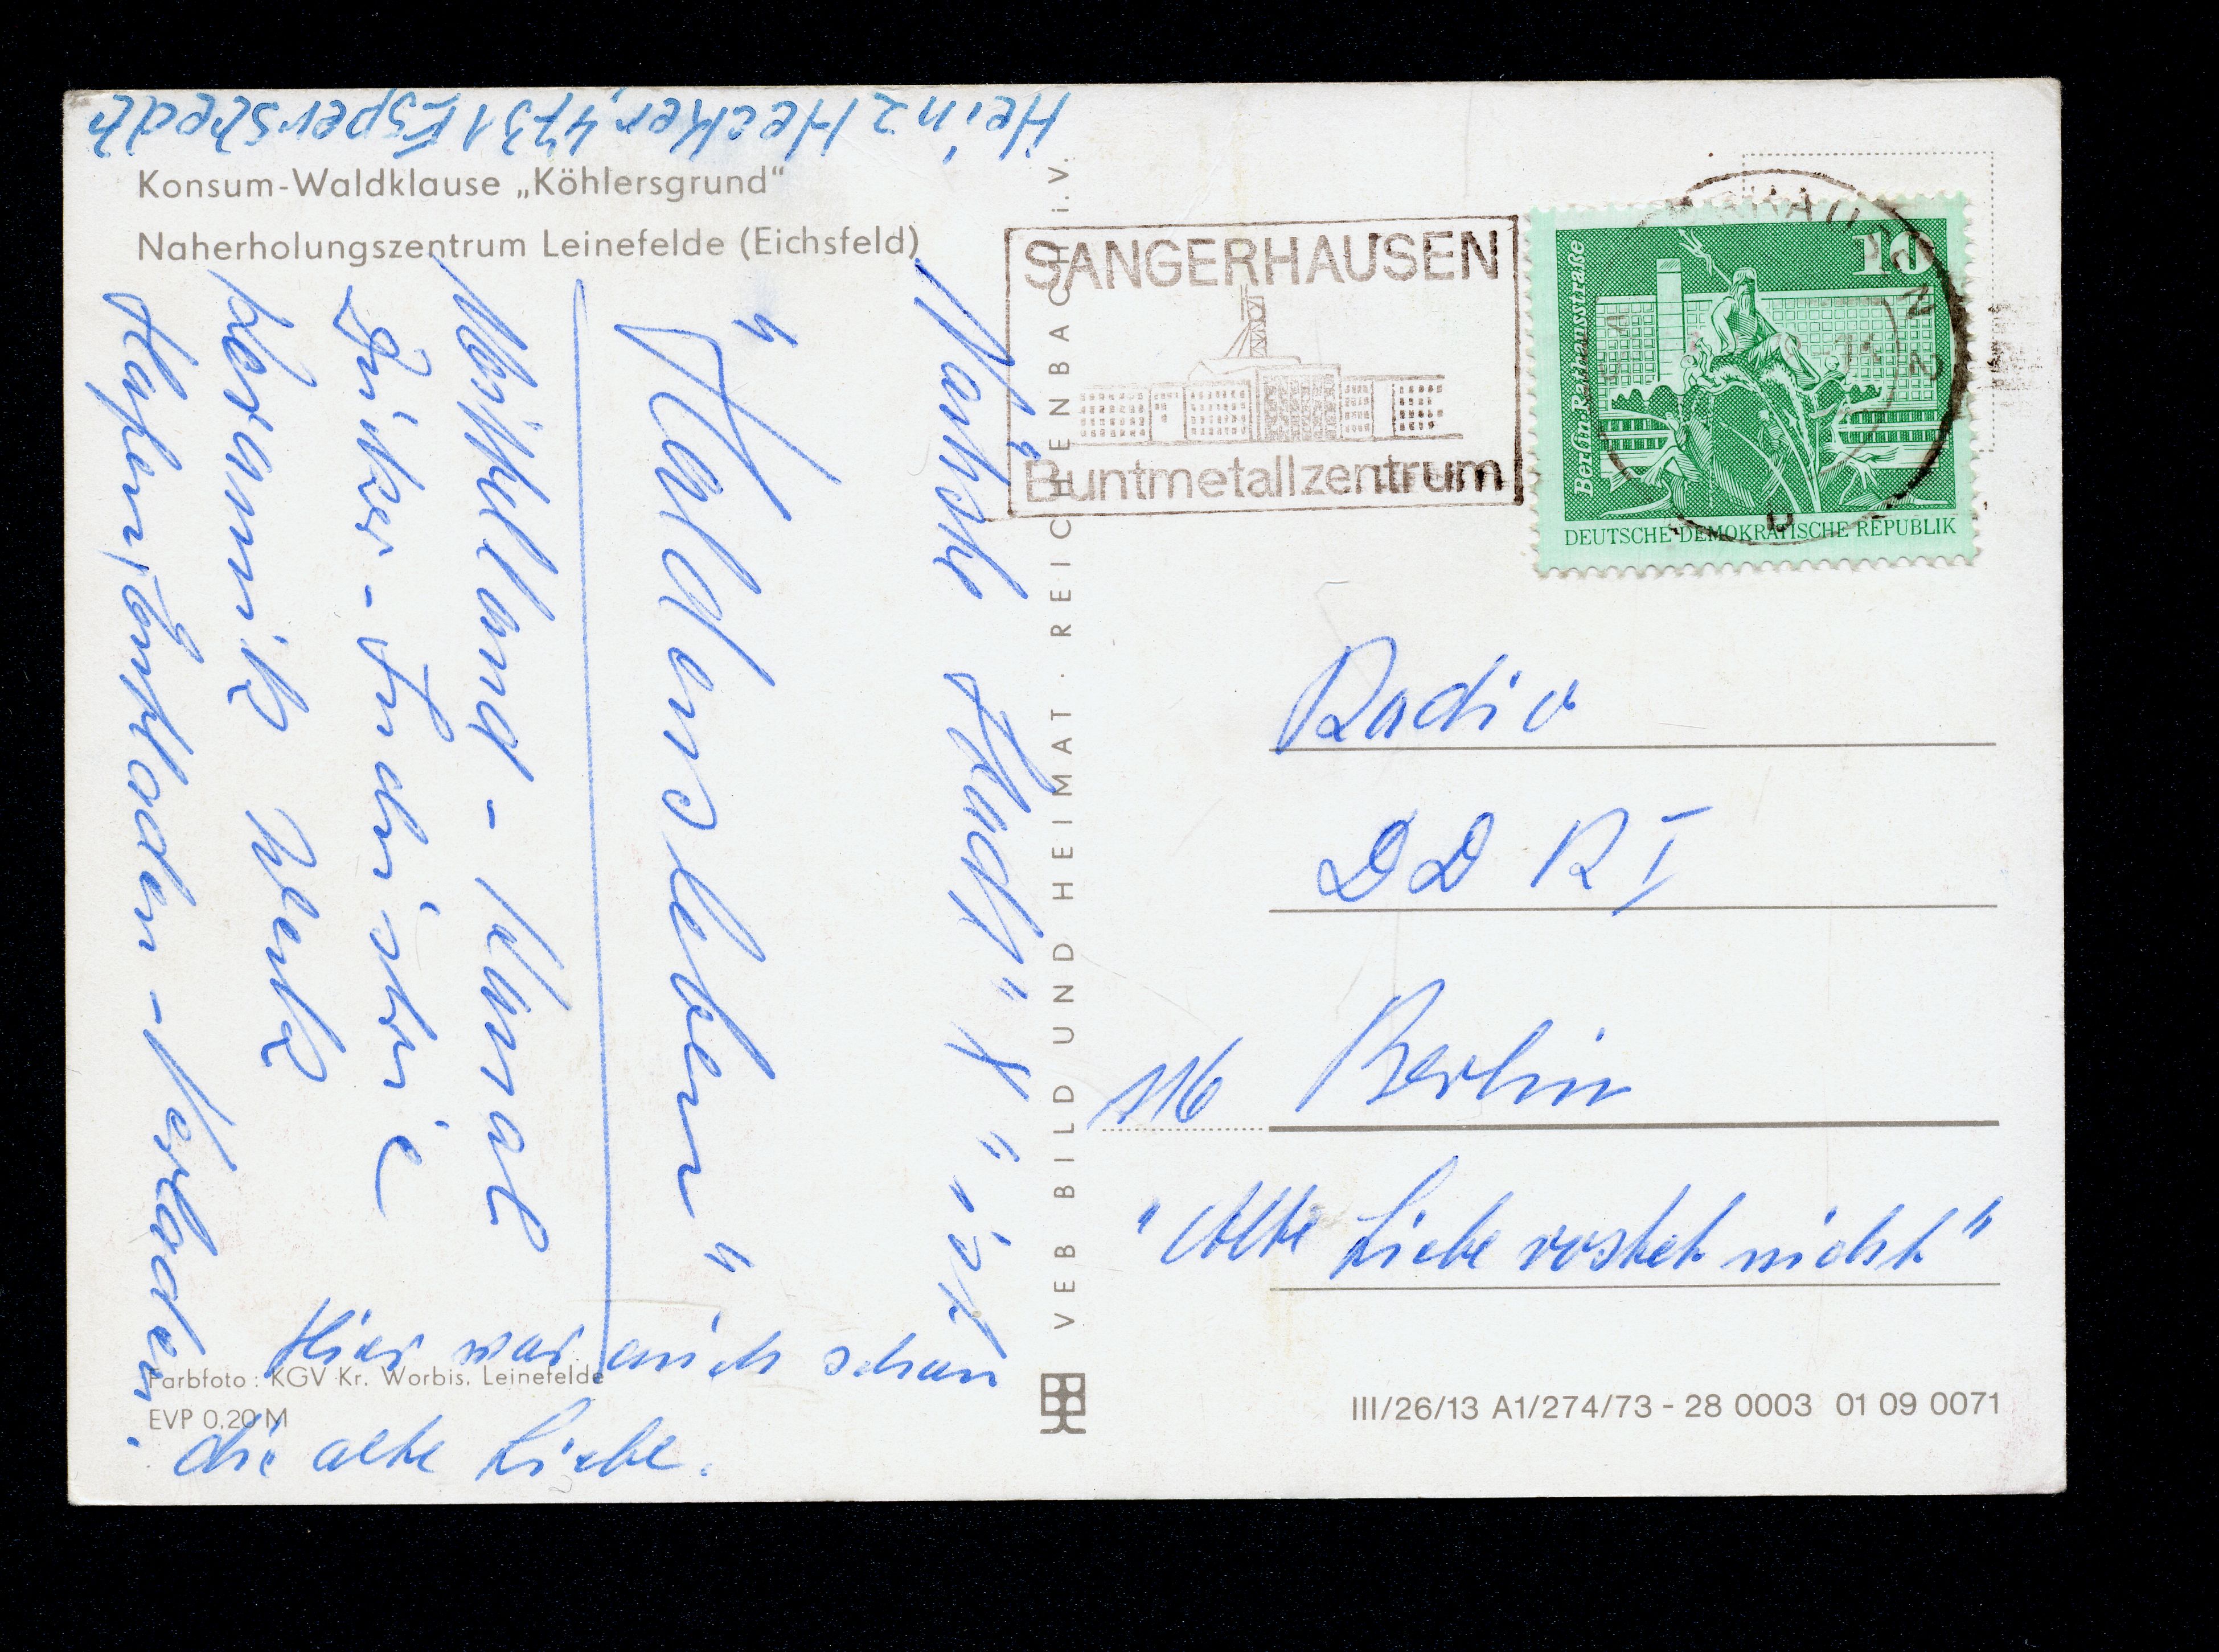 Heinz Hecker, 4731 Esperstedt
Konsum-Waldklause „Köhlersgrund“
Naherholungszentrum Leinefelde (Eichsfeld)
Stadt "X" ist
"Haldensleben"
Mittelland-Kanal
Zucker-Industrie
Keramik Werk
Hafen,
-Verladen.
Hier war auch schon
die alte Liebe.
Farbfoto: KGV Kr. Worbis, Leinefelde
EVP 0.20 M
VEB BILD UND HEIMAT · REICHENBACH i. V.
SANGERHAUSEN
Buntmetallzentrum
10
Berlin Rathausstraße
DEUTSCHE DEMOKRATISCHE REPUBLIK
Radio
DDR I
116 Berlin
"Alte Liebe rostet nicht"
III/26/13 A1/274/73 - 28 0003 01 09 0071